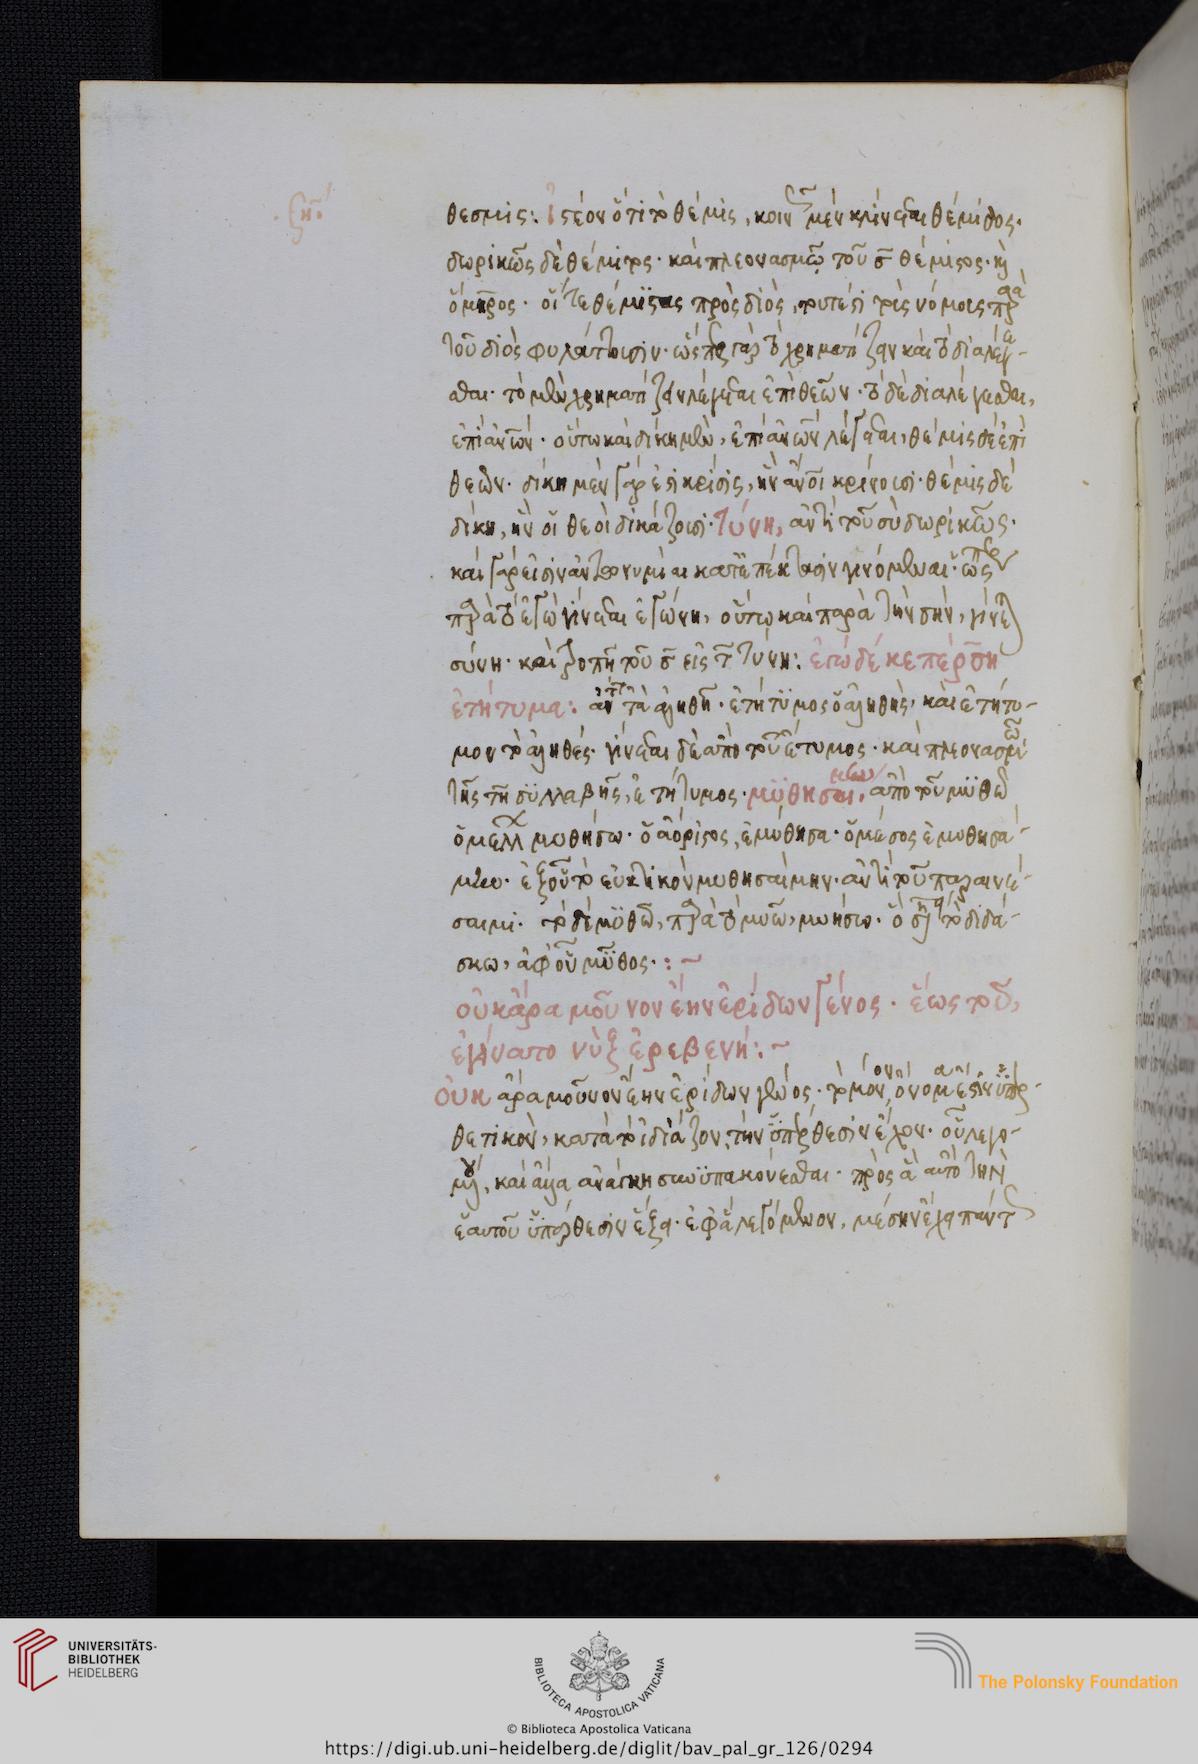 ση΄
θεσμις: Ἰστέον ὅτι τὸ θέμις, κοινῶς μὲν κλίνεται θέμιδος·
δωρικῶς δὲ θέμιτος· καὶ πλεονασμῶ τοῦ σ̄ θέμιστος· κὴ
ὅμηρος· οἵ τε θέμιϊστας πρὸς διὸς, τουτέστι τοὺς νόμους παρὰ
τοῦ διὸς φυλάττουσιν· ὥσπερ γὰρ τὸ χρηματίζειν καὶ τὸ διαλέγε-
σθαι· τὸ μὲν χρηματίζειν λέγεται ἐπὶ θεῶν· τὸ δὲ διαλέγεσθαι,
ἐπὶ ἀνων· οὕτω καὶ δίκη μὲν, ἐπὶ ἀνων λέγεται, θέμις δέ ἐπὶ
θεῶν· δίκη μὲν γάρ ἐστι κρίσις, ἣν ἄνοι κρίνουσι· θέμις δέ
δίκη, ἣν οἵ θεοὶ δικάζουσι· τύνη, ἀντὶ τοῦ σὺ δωρικῶς·
καὶ γάρ εἰσιν ἀντωνυμίαι κατ' ἐπέκτασιν γινόμεναι· ὥσπερ
παρὰ τὸ ἐγὼ γίνεται ἐγώνη, οὕτω καὶ παρὰ τὴν σὴν, γίνεται
σύνη· καὶ τροπῆ τοῦ σ̄ εἰς τ̄ τύνη: ἐπώδέ κε πέρση
ἐτήτυμα: ἀντὶ τὰ ἀληθῆ· ἐτήτυμος ὁ ἀληθὴς, καὶ ἐτήτυ-
μον τὸ ἀληθές· γίνεται δὲ ἀπὸ τοῦ ἔτυμος· καὶ πλεονασμῶ
τῆς τη συλλαβῆς, ἐτήτυμος· μυθησαίμην, ἀπὸ τοῦ μυθῶ
ὁ μέλλ μυθήσω· ὁ ἀόριστος, ἐμύθησα· ὁ μέσος ἐμυθησά-
μην· ἐξ οὗ τὸ εὐκτικὸν μυθησαίμην· ἀντὶ τοῦ παραινέ-
σαιμι· τὸ δὲ μυθῶ, παρὰ τὸ μυῶ, μυήσω· ὃ σημαίνει τὸ διδά-
σκω, ἀφ' οὗ μῦθος· :~
οὐκ ἄρα μοῦνον ἔην ἐρίδων γένος· ἕως τοῦ,
ἐγείνατο νὺξ ἐρεβενή:~
Οὐκ ἄρα μοῦνον ἔην ἐρίδων γένος· τὸ μόνον, ὄνομα ἐστὶν ὑπερ-
θετικὸν, κατὰ τὸ ἰδιάζον, τὴν ὑπέρθεσιν ἔχον· οὗ λεγο-
μένου, καὶ ἄλλα ἀνάγκη συνυπακούεσθαι· πρὸς ἃ αὐτὸ τὴν
ἑαυτοῦ ὑπέρθεσιν ἕξει· ἐφ' ἃ λεγόμενον, μέσην ἔχει παντ
UNIVERSITÄTS-
BIBLIOTHEK
HEIDELBERG
BIBLIOTECA APOSTOLICA VATICANA
The Polonsky Foundation
© Biblioteca Apostolica Vaticana
https://digi.ub.uni-heidelberg.de/diglit/bav_pal_gr_126/0294